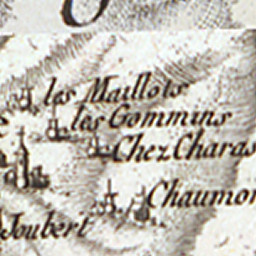 les Maillots
les Gommins
Chez Charas
Chaumon
Joubert